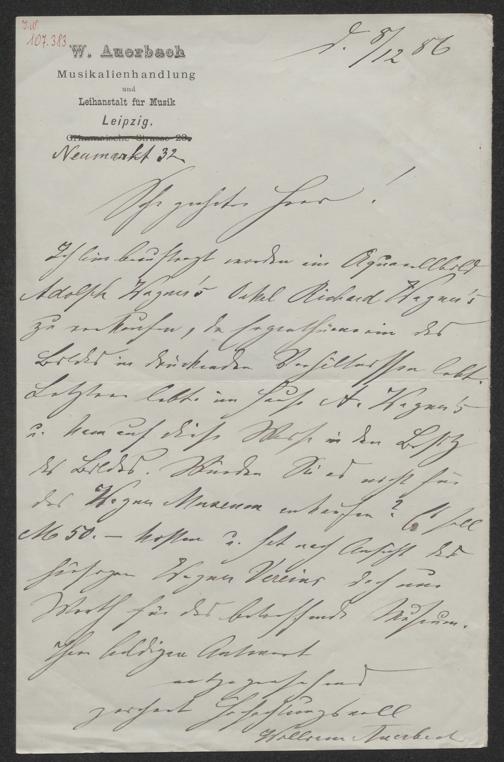 I.W.
107.383.
W. Auerbach
Musikalienhandlung
und
Leihanstalt für Musik
Leipzig.
Neumarkt 32
d. 8/12 86
Sehr geehrter Herr!
Ich bin beauftragt worden ein Aquarellbild
Adolph Wagner's Onkel Richard Wagner's
zu verkaufen, da Eigenthümerin des
Bildes in drückenden Verhältnissen lebt.
Letztere lebte im Hause A. Wagner's
u. kam auf diese Weise in den Besitz
des Bildes. Würden Sie es nicht für
das Wagner Museum ankaufen? Es soll
M 50.— kosten u. hat nach Ansicht des
hiesigen Wagner Vereins doch nur
Werth für das betreffende Museum.
Ihrer baldigen Antwort
entgegensehend
zeichnet Hochachtungsvoll
William Auerbach